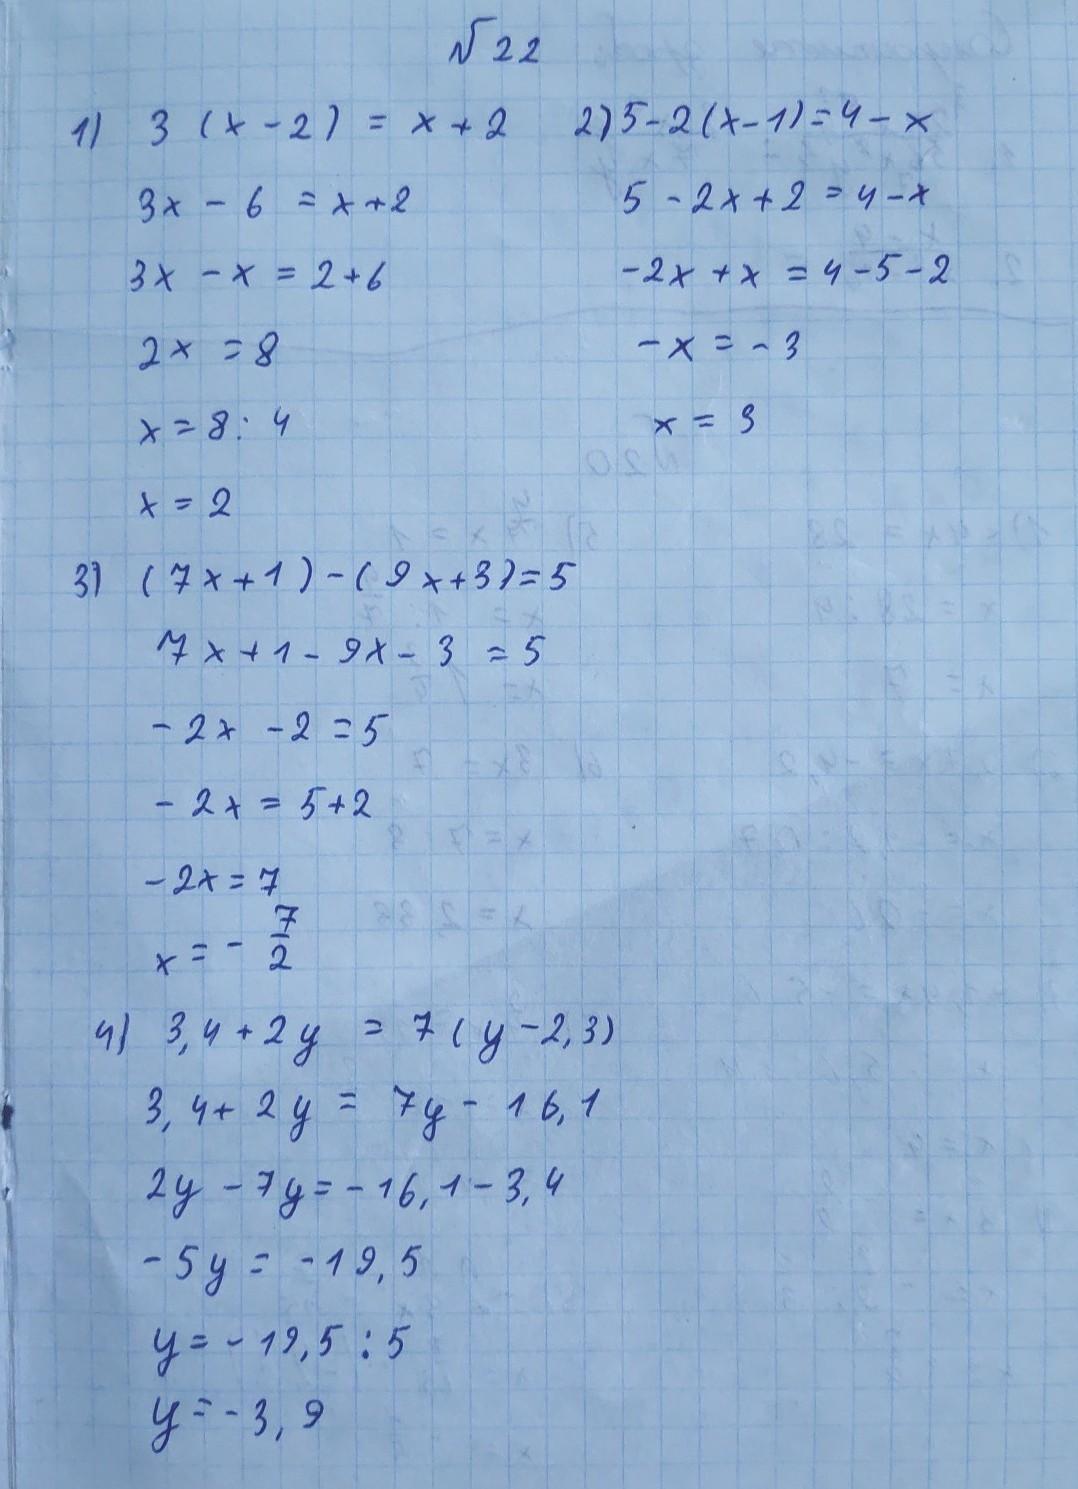 №22
1) 3 (x - 2) = x + 2
3x - 6 = x + 2
3x - x = 2 + 6
2x = 8
x = 8 : 4
x = 2
2) 5 - 2(x - 1) = 4 - x
5 - 2x + 2 = 4 - x
-2x + x = 4 - 5 - 2
-x = -3
x = 3
3) (7x + 1) - (9x + 3) = 5
7x + 1 - 9x - 3 = 5
-2x - 2 = 5
-2x = 5 + 2
-2x = 7
x = - 7/2
4) 3,4 + 2y = 7 (y - 2,3)
3,4 + 2y = 7y - 16,1
2y - 7y = -16,1 - 3,4
-5y = -19,5
y = -19,5 : 5
y = -3,9